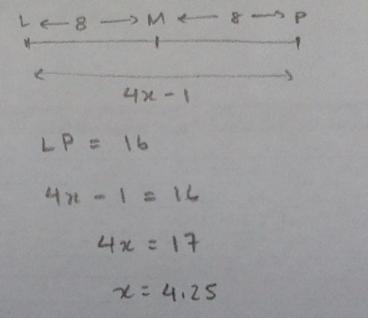 L ← 8 → M ← 8 → P
4x - 1
LP = 16
4x - 1 = 16
4x = 17
x = 4.25